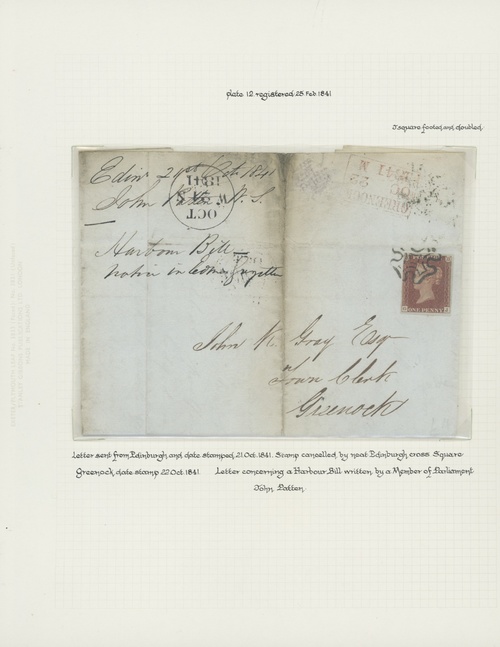 plate 12 registered 25 Feb 1841
J square footed and doubled.
Edinr 21st Oct. 1841
John Patten W. S.
OCT
1841
Harbour Bill
Notice in Edinr Gazette
GREENOCK
OC 22
1841
ONE PENNY
John K. Gray Esqr
Town Clerk
Greenock
Letter sent from Edinburgh and date stamped 21 Oct. 1841. Stamp cancelled by neat Edinburgh cross Square
Greenock date stamp 22 Oct 1841. Letter concerning a Harbour Bill written by a Member of Parliament
John Patten